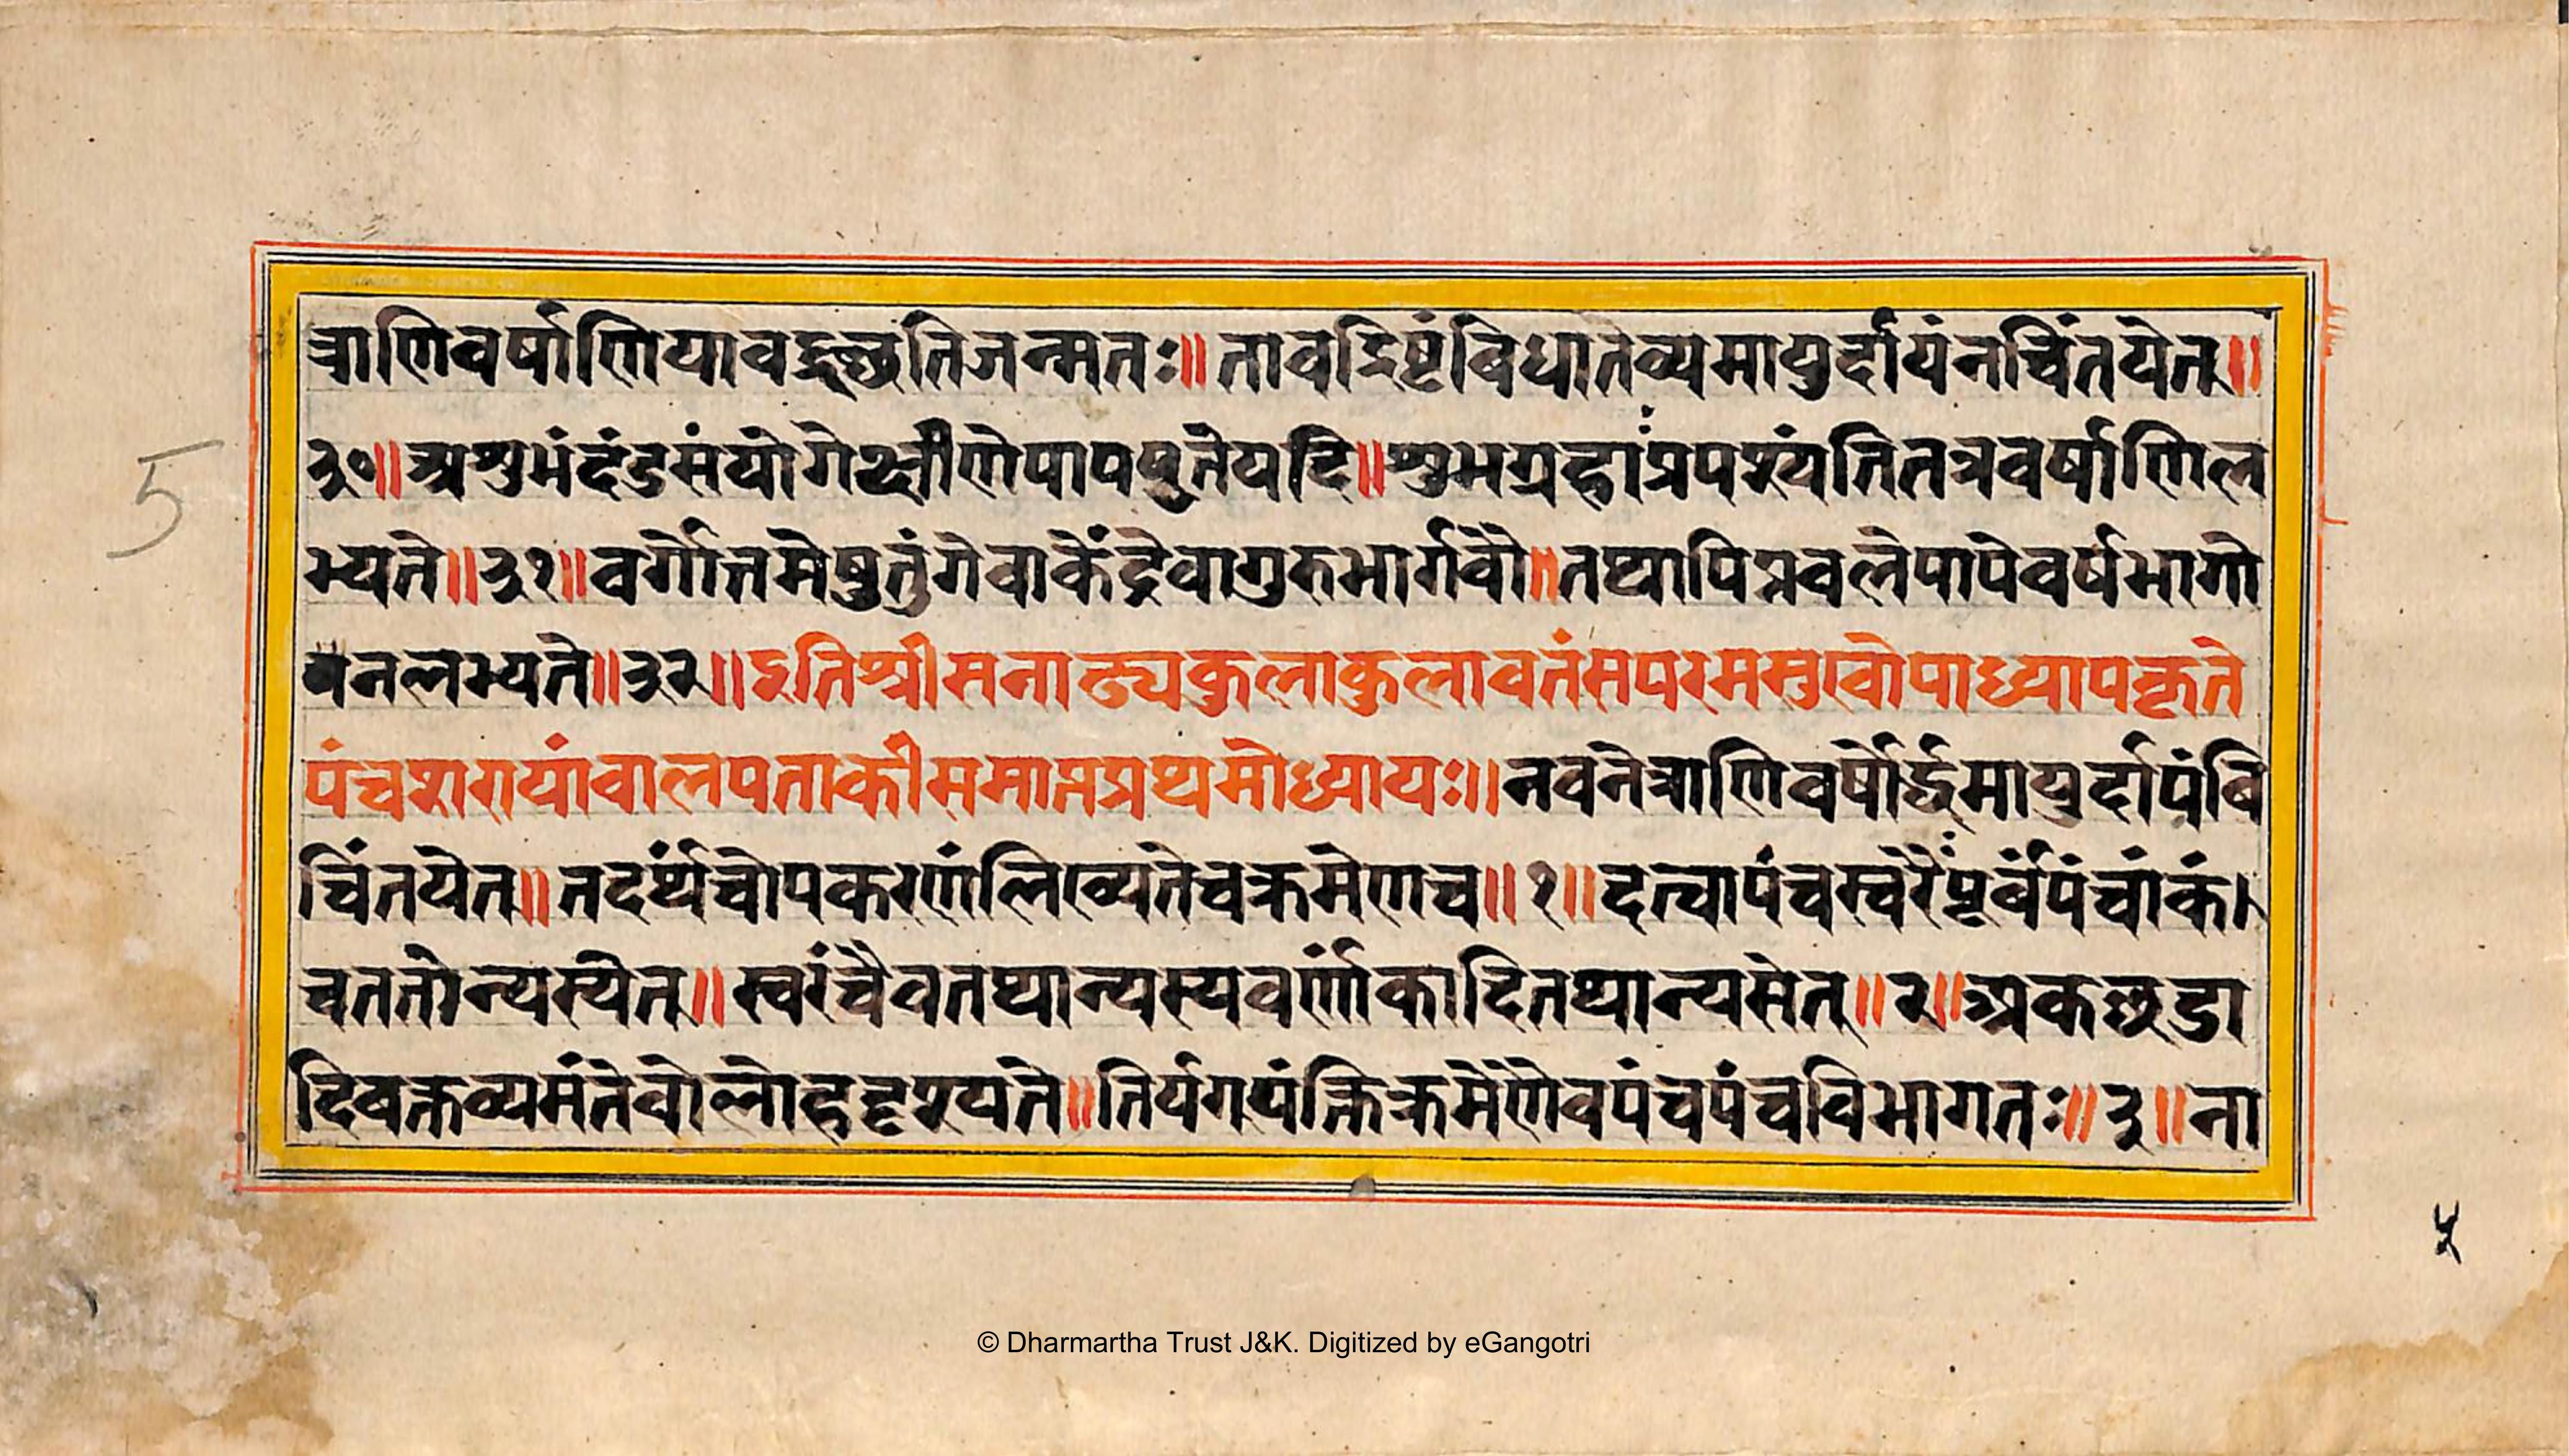 त्राणिवर्षाणियावद्गछतिजन्मतः॥तावद्दिष्टंविधातव्यमायुर्दायंनचिंतयेत्॥
३०॥अशुभंदंडसंयोगेक्षीणेपापयुतेयदि॥शुभग्रहाःप्रपश्यंतितत्रवर्षाणिल
भ्यते॥३१॥वर्गोत्तमेषुतुंगेवाकेंद्रेवागुरुभार्गवौ॥तथापिप्रवलेपापेवर्षभागो
वनलभ्यते॥३२॥इतिश्रीसनाढ्यकुलाकुलावतंसपरमसुखोपाध्यायकृते
पंचशरायांवालपताकीसमाप्तप्रथमोध्यायः॥नवनेत्राणिवर्षोर्द्धमायुर्दायंवि
चिंतयेत्॥तदर्थंचोपकरणंलिख्यतेचक्रमेणच॥१॥दत्वापंचस्वरैःपूर्वंपंचांकं।
चततोन्यस्येत्॥स्वरंचैवतथान्यस्यवर्णांकादितथान्यसेत्॥२॥अकछडा
दिवक्तव्यमंतेवोलोहदृश्यते॥तिर्यग्पंक्तिक्रमेणैवपंचपंचविभागतः॥३॥ना
5
५
© Dharmartha Trust J&K. Digitized by eGangotri